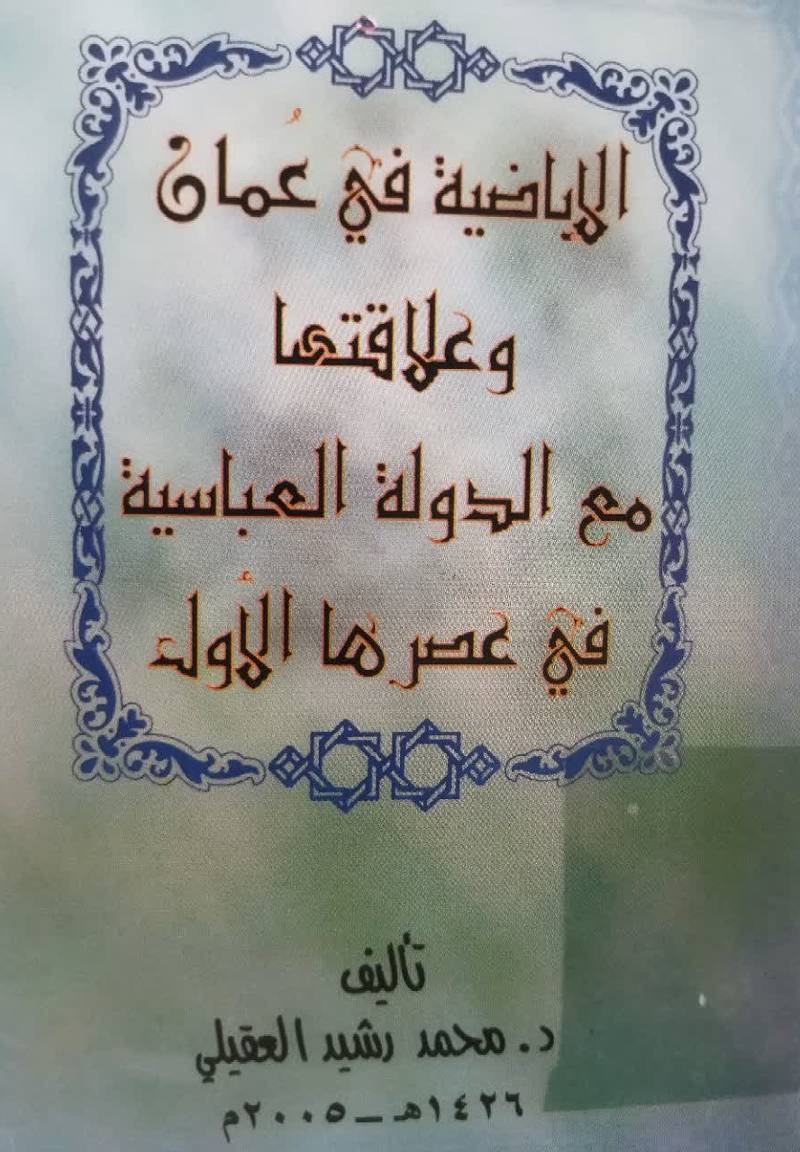 الإباضية في عُمان
وعلاقتها
مع الدولة العباسية
في عصرها الأول
تأليف
د. محمد رشيد العقيلي
١٤٢٦هـ _ ٢٠٠٥م